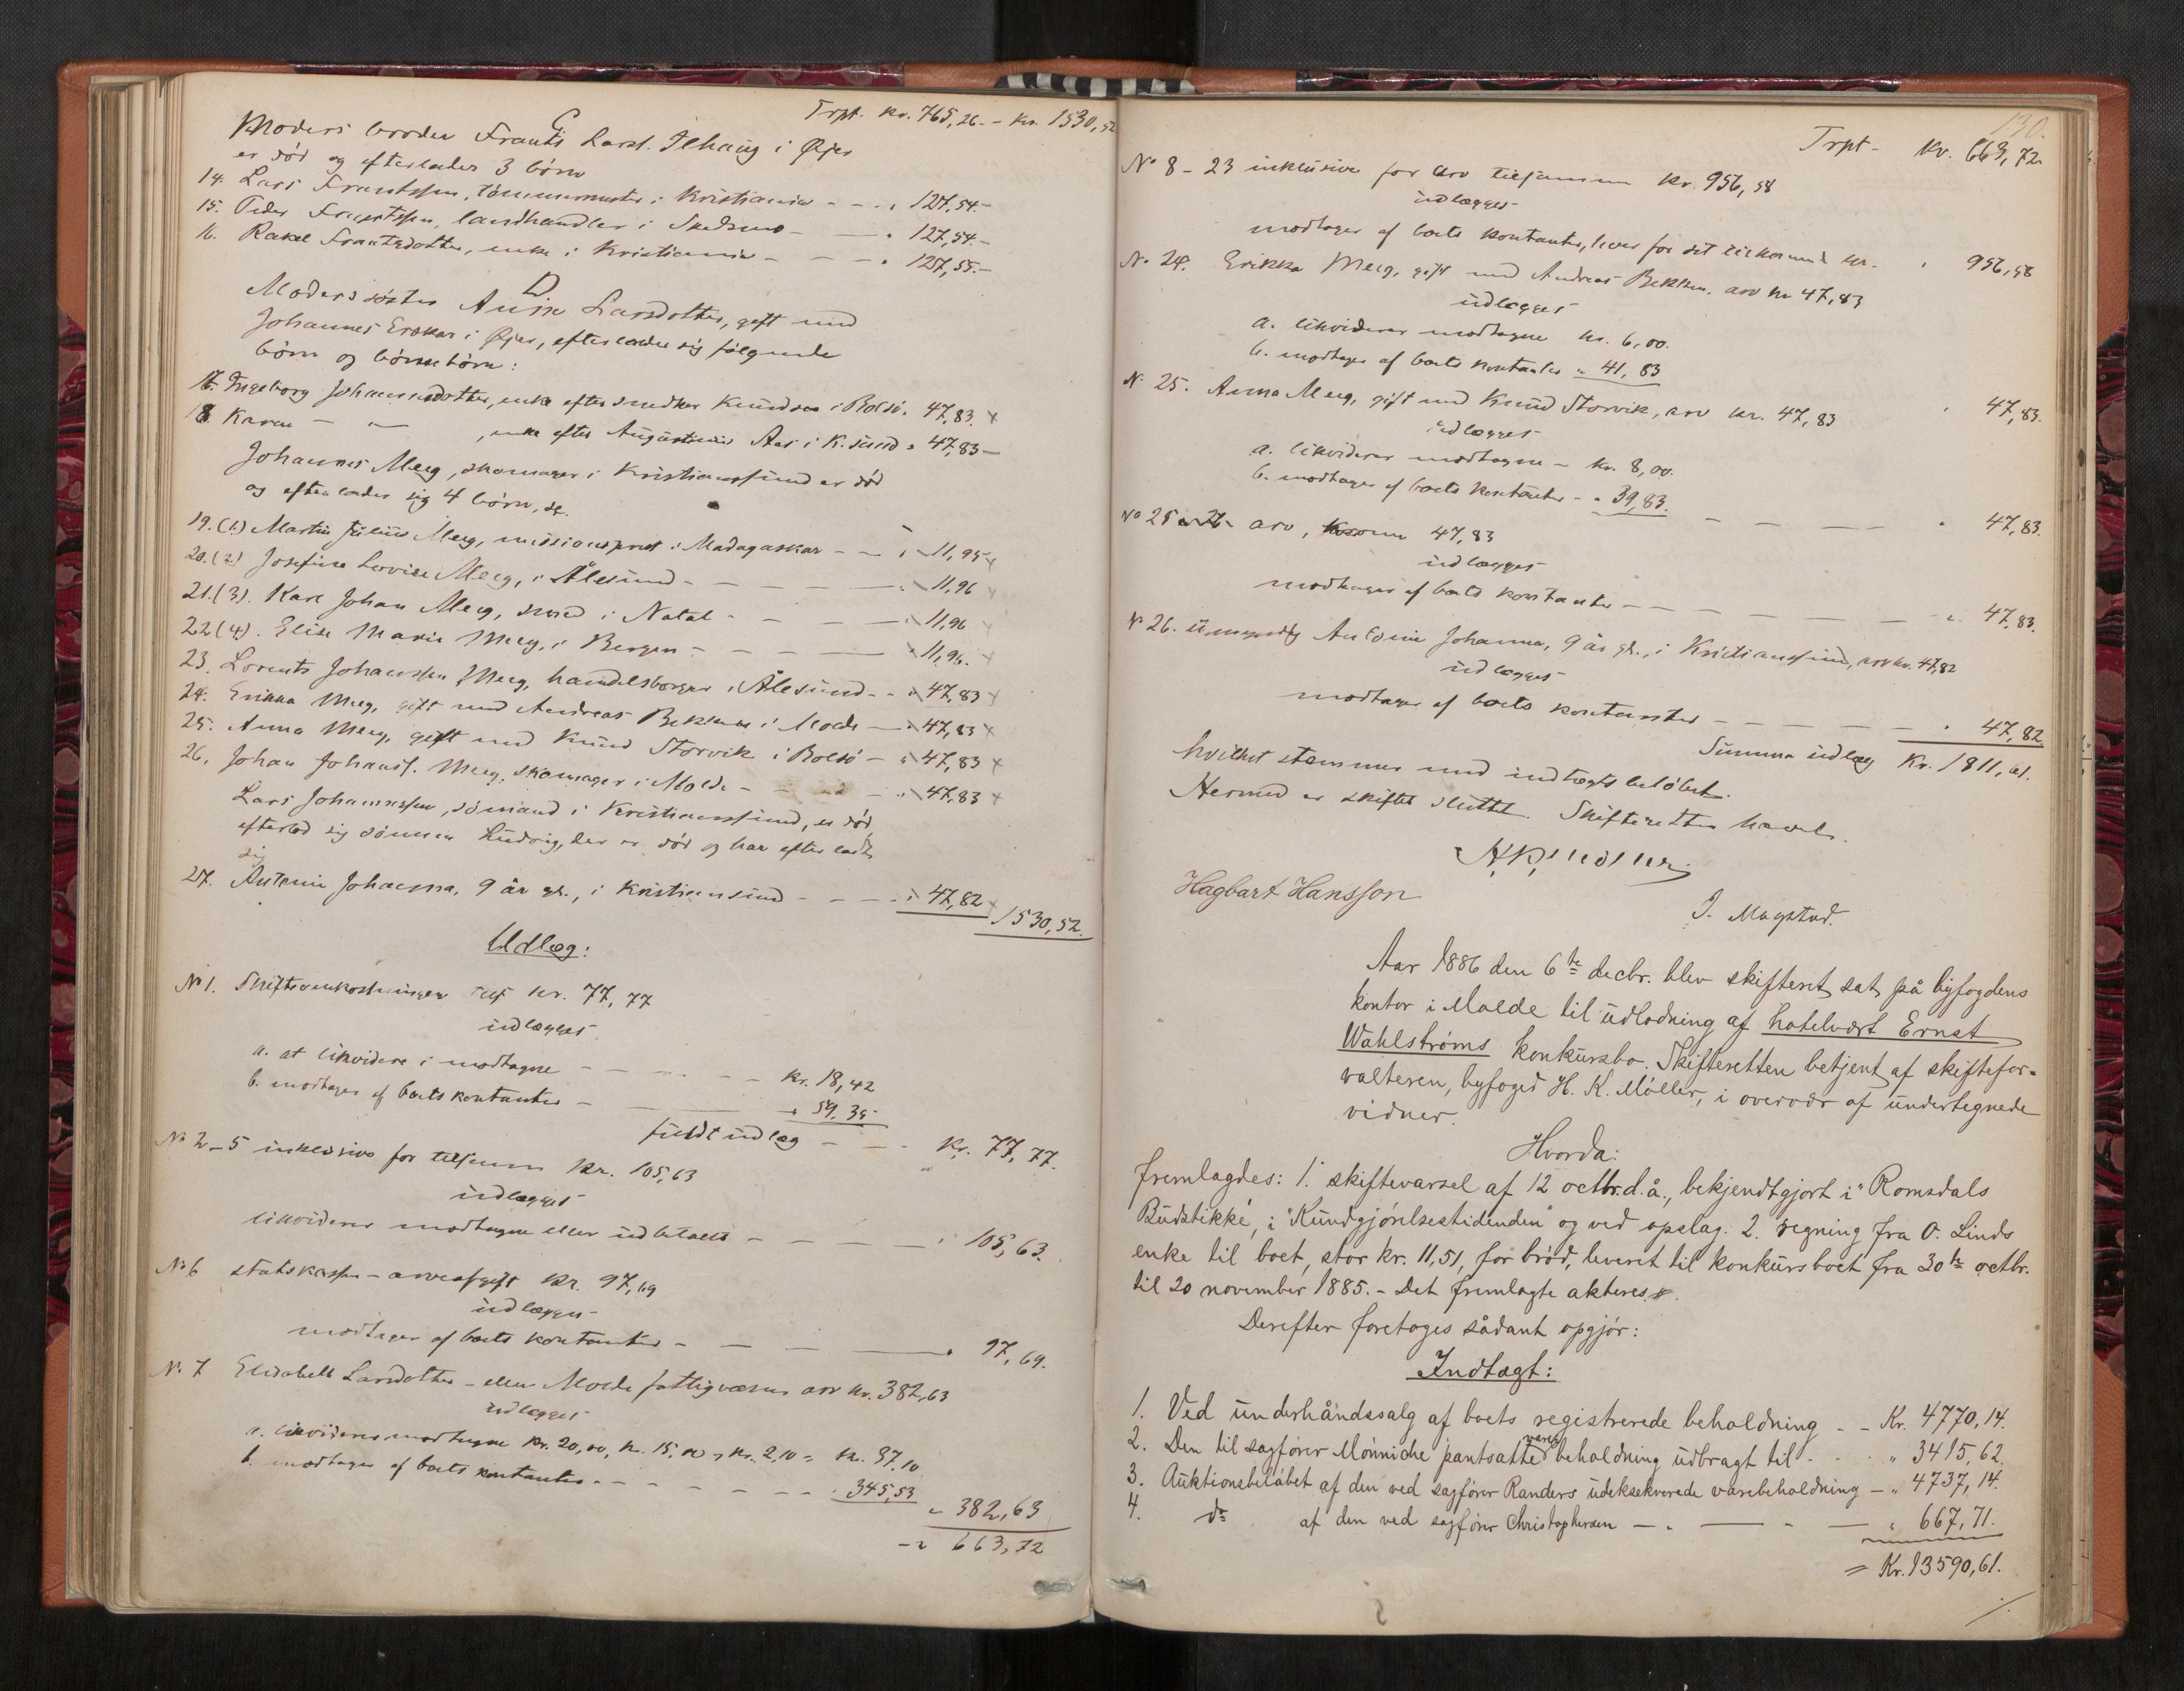 Trpt. kr. 765,26. – kr. 1530,52
C
Moders broder Frants Larss. Ilhaug i Øjer
er död og efterlader 3 börn
14. Lars Frantssen, tömmermester i Kristiania - - . " 127,54.-
15. Peder Frantssen, landhandler i Skedsmo - — " 127,54.-
16. Rakel Frantsdotter, enke i Kristiania - - - " 127,55.-
D
Moders söster Anne Larsdotter, gift med
Johannes Erskar i Øjer, efterlader sig fölgende
börn og börnebörn:
17. Ingeborg Johannesdotter, enke efter snedker Knudsen i Bolsö. 47,83. x
18 Karen — " — , enke efter Augustinus Aas i K.sund " 47,83 —
Johannes Meeg, skomager i Kristianssund er död
og efterlader sig 4 börn, se.
19. (1.) Martin Julius Meeg, missionsprest i Madagaskar - - " 11,95 x
20. (2.) Josefine Lovise Meeg, i Ålesund - - — " 11,96
21. (3). Karl Johan Meeg, smed i Natal - - — " 11,96
22 (4). Elise Marie Meeg, i Bergen - - — " 11,96. x
23. Lorents Johanssen Meeg, handelsborger i Ålesund - - " 47,83 x
24. Erikka Meeg, gift med Andreas Bekken i Molde — " 47,83 x
25. Anna Meeg, gift med Knud Storvik i Bolsö - " 47,83 x
26. Johan Johanss. Meeg, skomager i Molde - - - " 47,83 x
Lars Johannessen, sömand i Kristianssund, er död,
efterlod sig sönnen Ludvig, der er död og har efterladt
sig
27. Antonie Johanna, 9 år gl., i Kristiansund - - - " 47,82 x
1530,52.
Udlæg:
No 1. Skifteomkostninger kr. 77,77
udlægges
a. at likvidere i modtagne - - - - kr. 18,42
b. modtager af boets kontanter - — " 59.35
fuldt udlæg - - - kr. 77,77.
No 2-5 inklusive for tilsammen kr. 105,63
udlægges
likviderer modtagne eller udbetalt - - — " 105,63.
No 6 statskassen - arveafgift kr. 97,69
udlægges
modtager af boets kontanter - - — " 97,69.
No 7 Elisabeth Larsdotter - eller Molde fattigvæsen arv kr. 382,63
udlægges
a. likviderer modtagne kr. 20,00, kr. 15,00, kr. 2,10 = kr. 37,10
b. modtager af boets kontanter - - - - - - " 345,53
" 382,63
- " 663,72
130.
Trpt - kr. 663,72.
No 8 - 23 inklusive for arv tilsammen kr. 956,58
udlægges
modtager af boets kontanter, hver for sit tilkommende kr. " 956,58
No 24. Erikka Meeg, gift med Andreas Bekken, arv kr 47,83
udlægges
a. likviderer modtagne kr. 6,00.
b. modtager af boets kontanter " 41,83
" 47,83.
No 25. Anna Meeg, gift med Knud Storvik, arv kr. 47,83
udlægges
a. likviderer modtagne - kr. 8,00.
b. modtager af boets kontanter - " 39,83. - - — - " 47,83.
No 25 arv, 47,83
udlægges
modtager af boets kontanter - - - — — " 47,83.
No 26. umyndig Antonie Johanna, 9 år gl., i Kristianssund, arv kr. 47,82
udlægges
modtager af boets kontanter - - - — - " 47,82
Summa udlæg kr. 1811,61.
hvilket stemmer med indtægtsbelöbet.
Hermed er skiftet sluttet. Skifteretten hævet.
H. K. Møller
Hagbart Hansson
J. Magstad.
Aar 1886 den 6te decbr. blev skifteret sat på byfogdens
kontor i Molde til udlodning af hotelvært Ernst
Wahlströms konkursbo. Skifteretten betjent af skiftefor-
valteren, byfoged H. K. Möller, i overvær af undertegnede
vidner.
Hvorda:
fremlagdes: 1. skiftevarsel af 12 octbr. d. å., bekjendtgjort i "Romsdals
Budstikke", i "Kundgjörelsestidenden" og ved opslag. 2. regning fra O. Linds
enke til boet, stor kr. 11,51, for bröd, leveret til konkursboet fra 30te octbr.
til 20 november 1885. - Det fremlagte akteres.
Derefter foretages sådant opgjör:
Indtægt:
1. Ved underhåndssalg af boets registrerede beholdning - - Kr. 4770,14.
2. Den til sagförer Mönniche pantsatte varebeholdning udbragt til - . " 3415,62.
3. Auktionsbelöbet af den ved sagförer Randers udeksekverede varebeholdning - " 4737,14.
4. do af den ved sagförer Christophersen — . — - — " 667,71.
= Kr. 13590,61.